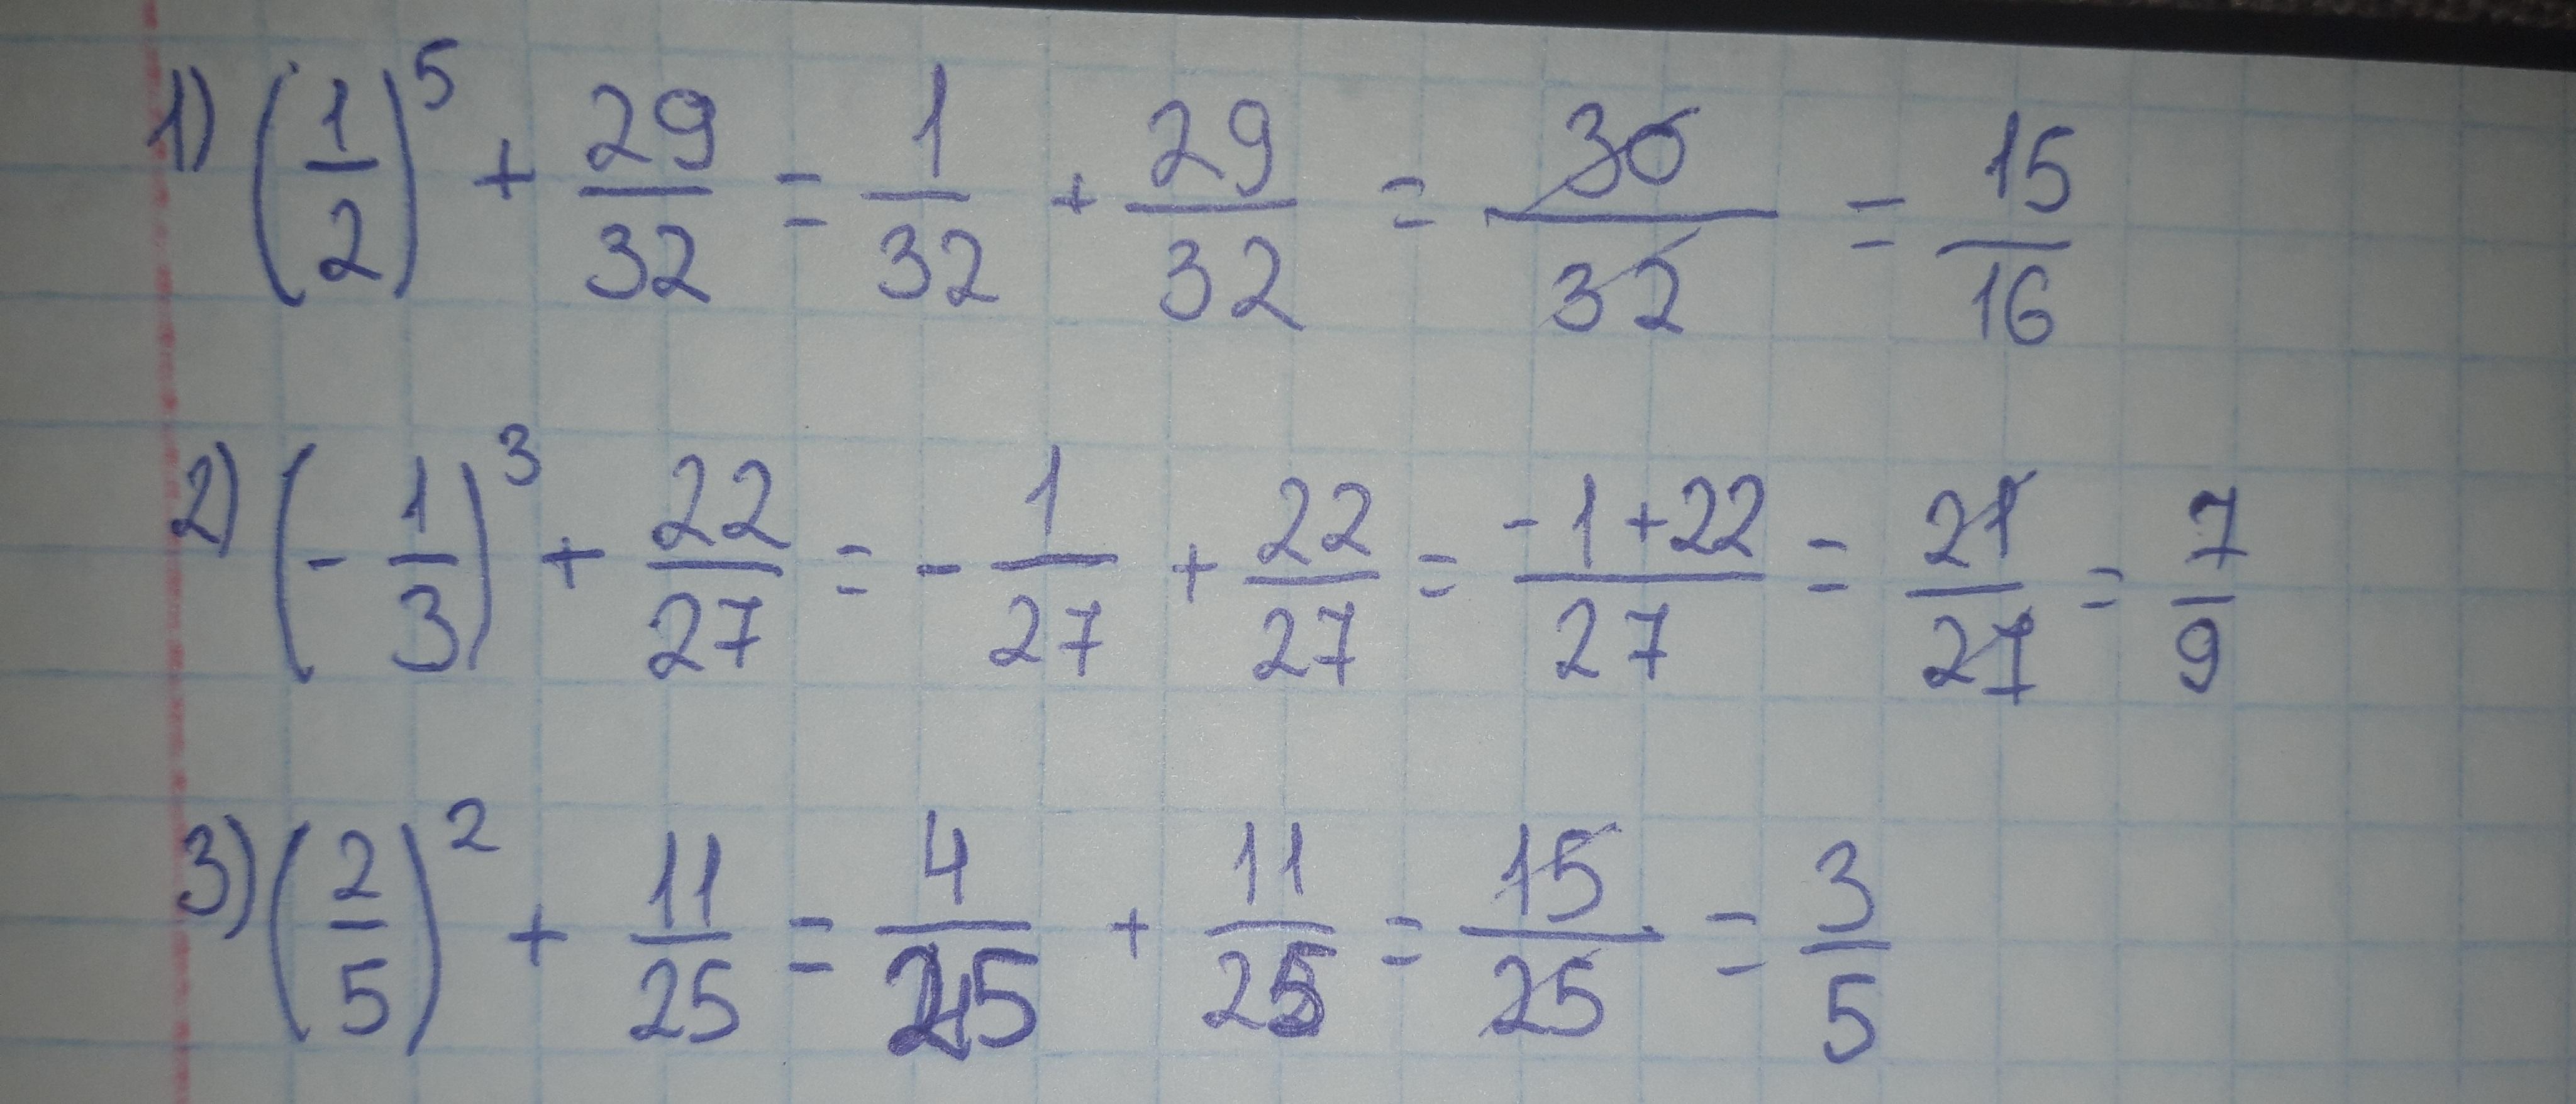 1) (1/2)^5 + 29/32 = 1/32 + 29/32 = 30/32 = 15/16
2) (- 1/3)^3 + 22/27 = - 1/27 + 22/27 = -1+22/27 = 21/27 = 7/9
3) (2/5)^2 + 11/25 = 4/25 + 11/25 = 15/25 = 3/5